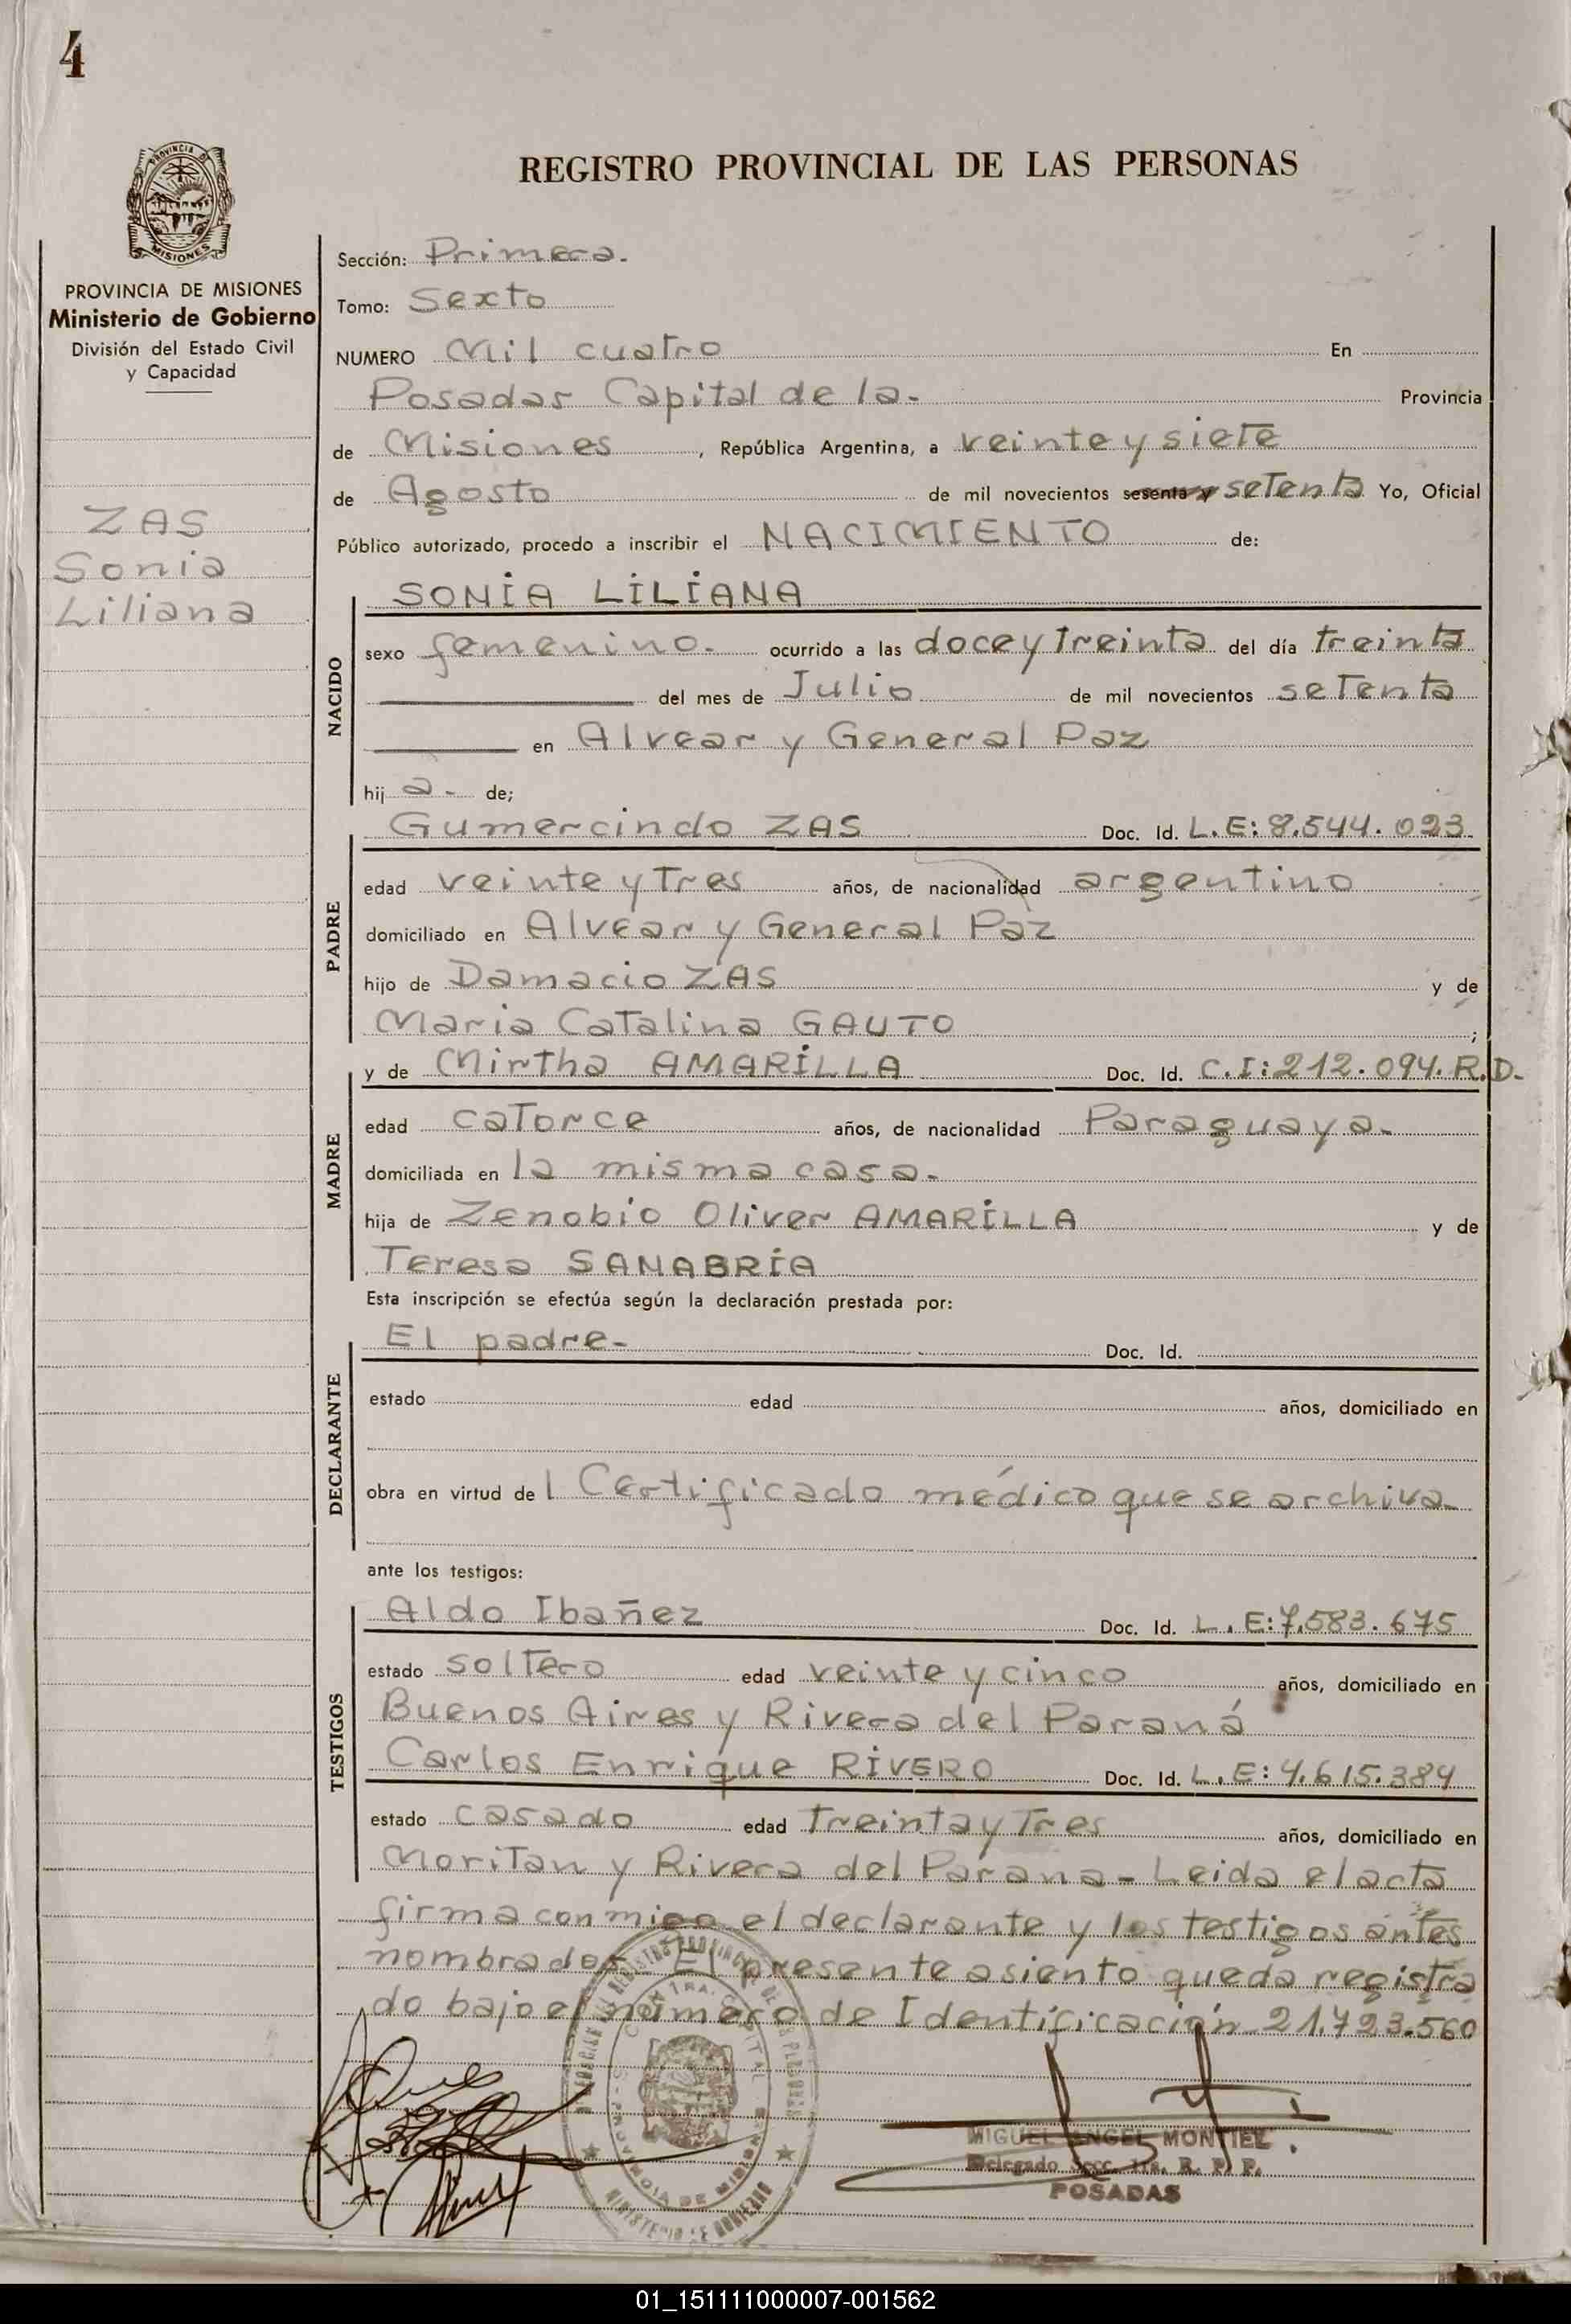 4
PROVINCIA DE
MISIONES
REGISTRO PROVINCIAL DE LAS PERSONAS
PROVINCIA DE MISIONES
Ministerio de Gobierno
División del Estado Civil
y Capacidad
ZAS
Sonia
Liliana
Sección: Primera.
Tomo: Sexto
NUMERO Mil cuatro En
Posadas Capital de la. Provincia
de Misiones, República Argentina, a veinte y siete
de Agosto de mil novecientos sesenta y setenta Yo, Oficial
Público autorizado, procedo a inscribir el NACIMIENTO de:
NACIDO
SONIA LILIANA
sexo femenino. ocurrido a las doce y treinta del día treinta
del mes de Julio de mil novecientos setenta
en Alvear y General Paz
hij a. de;
PADRE
Gumercindo ZAS Doc. Id. L.E: 8.544.023
edad veinte y Tres años, de nacionalidad argentino
domiciliado en Alvear y General Paz
hijo de Damacio ZAS y de
Maria Catalina GAUTO ;
MADRE
y de Mirtha AMARILLA Doc. Id. C.I: 212.094. R.D.
edad catorce años, de nacionalidad Paraguaya.
domiciliada en la misma casa.
hija de Zenobio Oliver AMARILLA y de
Teresa SANABRÍA
Esta inscripción se efectúa según la declaración prestada por:
DECLARANTE
El padre- Doc. Id.
estado edad años, domiciliado en
obra en virtud de l Certificado médico que se archiva-
ante los testigos:
TESTIGOS
Aldo Ibañez Doc. Id. L.E: 7.583.675
estado soltero edad veinte y cinco años, domiciliado en
Buenos Aires y Rivera del Paraná
Carlos Enrique RIVERO Doc. Id. L.E: 4.615.384
estado casado edad Treinta y Tres años, domiciliado en
Moritan y Rivera del Parana- Leida el acta
firma conmigo el declarante y los testigos antes
nombrados. El presente asiento queda registra
do bajo el número de Identificación 21.723.560
MIGUEL ANGEL MONTIEL
Delegado Secc. 1ra. R. P. P.
POSADAS
01_151111000007-001562